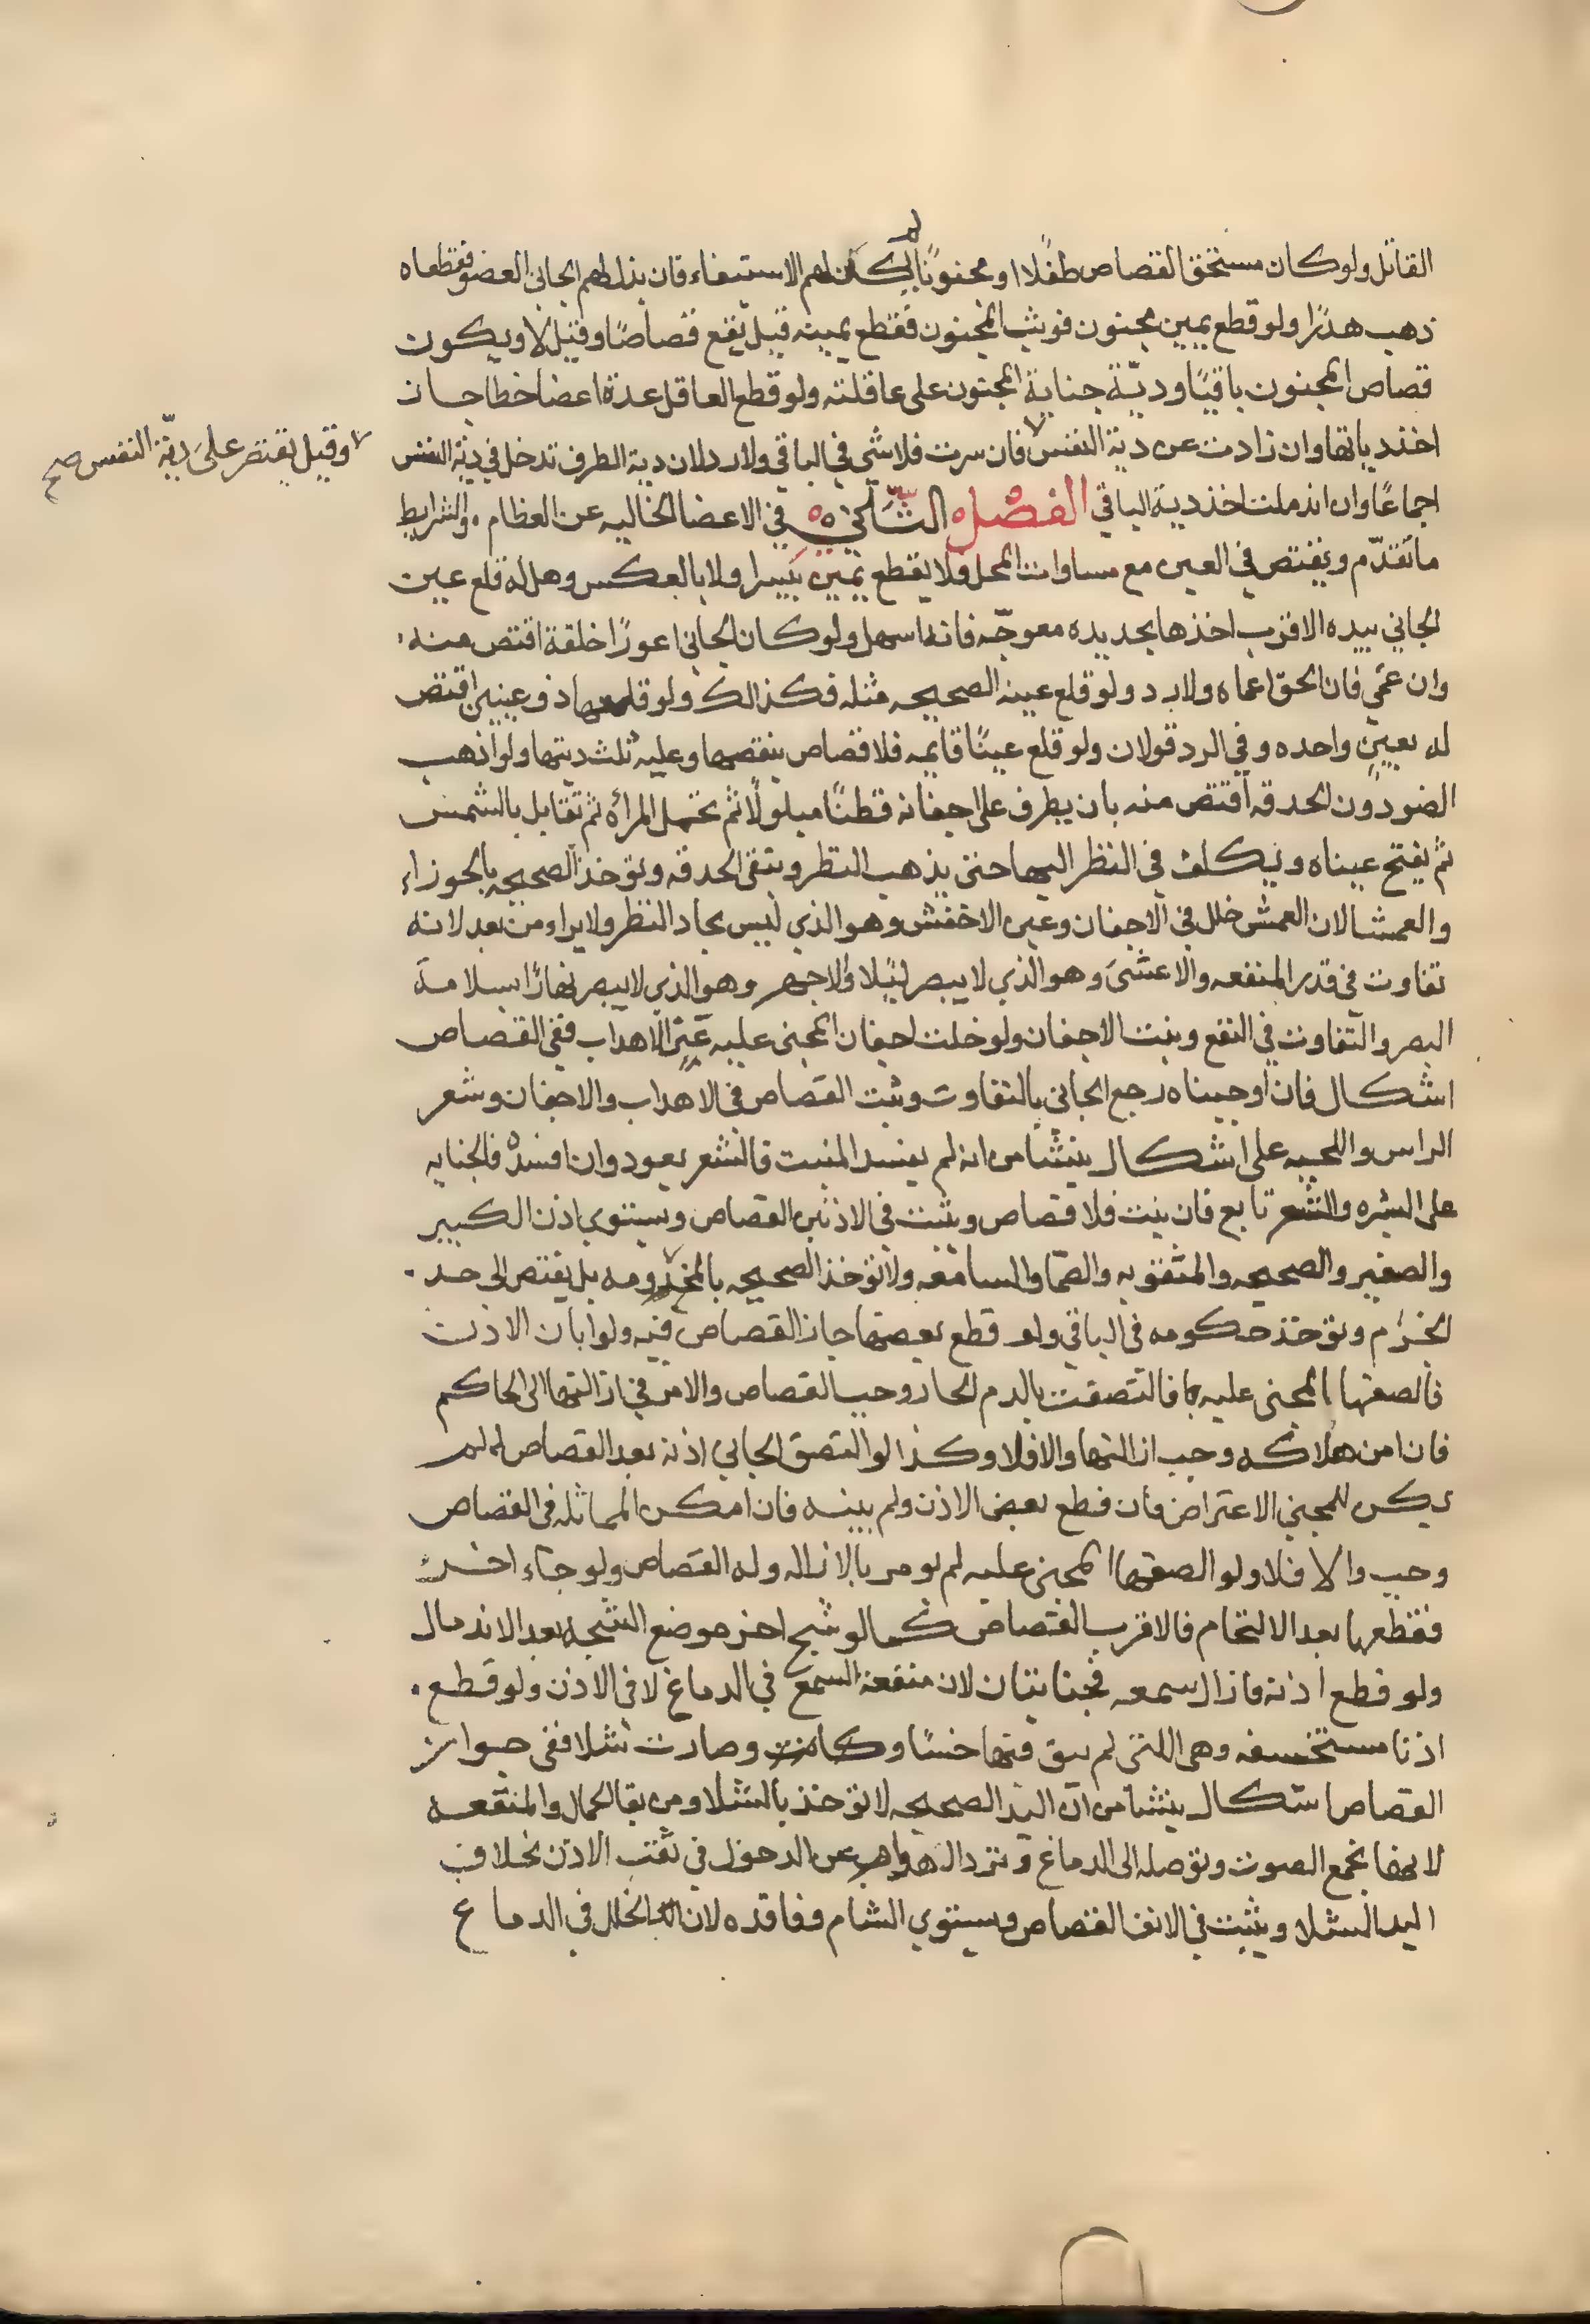 القاتل ولو كان مستحق القصاص طفلًا او مجنونًا لم يكن لهم الاستيفاء فان بذل لهم الجاني العضو فقطعاه
ذهب هدرًا ولو قطع يمين مجنون فوثب المجنون فقطع يمينه قيل يقع قصاصًا وقيل لا ويكون
قصاص المجنون باقيًا وديّة جناية المجنون على عاقلته ولو قطع العاقل عدة اعضا خطا جان
اخذ دياتها وان زادت عن دية النفس فان سرت فلا شي في الباقي ولا رد لان دية الطرف تدخل في دية النفس
وقيل يقتصر على ديّة النفس صح
اجماعًا وان اندملت اخذ دية الباقي الفصل الثاني في الاعضا الخاليه عن العظام والشرايط
ما تقدّم ويقتص في العين مع مساوات المحل ولا يقطع يمين بيسرا ولا بالعكس وهل له قلع عين
الجاني بيده الاقرب اخذها بحديده معوجّه فانه اسهل ولو كان الجاني اعورًا خلقة اقتص منه
وان عمي فان الحق اعماه ولا رد ولو قلع عينه الصحيحه مثله فكذالك ولو قلعها ذو عينين اقتص
له بعينٍ واحده وفي الرد قولان ولو قلع عينًا قايمه فلا قصاص بنقصها وعليه ثلث ديتها ولو اذهب
الضو دون الحدقه اقتص منه بان يطرف على اجفانه قطنًا مبلولًا ثم تحمل المرأه ثم تقابل بالشمس
ثم يفتح عيناه ويكلف في النظر اليها حتى يذهب النظر وبتقى الحدقه وتوخذ الصحيحه بالحوزاء
والعمشا لان العمش خلل في الاجفان وعين الاخفش وهو الذي ليس بحاد النظر ولا يراء من بعد لانه
تفاوت في قدر المنفعه والاعشىَ وهو الذي لا يبصر ليلًا والاجهر وهو الذي لا يبصر نهارًا سلامة
البصر والتفاوت في النفع وبنت الاجفان ولو خلت اجفان المجنى عليه عن الاهداب ففي القصاص
اشكال فان اوجبناه رجع الجاني بالتفاوت وثبت القصاص في الاهداب والاجفان وشعر
الراس واللحيه على اشكال ينشا من انه لم يفسد المنبت فالشعر يعود وان افسده فالجنايه
على البشره والشعر تابع فان ينبت فلا قصاص ويثبت في الاذنين القصاص ويستوي اذن الكبير
والصغير والصحيحه والمثقوبه والصمّا والسامعه ولا توخذ الصحيحه بالمخرومه بل يقتص الى حد
الخرم وتوخذ حكومه في الباقي ولو قطع بعضها جاز القصاص فيه ولو ابان الاذن
فالصقها المجنى عليه فالتصقت بالدم الحار وجب القصاص والامر في ازالتها الى الحاكم
فان امن هلاكه وجب ازالتها والا فلا وكذا لو التصق الجاني اذنه بعد القصاص لم
يكن للمجني الاعتراض فان قطع بعض الاذن ولم يبنه فان امكن المماثله في القصاص
وجب والا فلا ولو الصقها المجنى عليه لم يومر بالازاله وله القصاص ولو جاء اخر
فقطعها بعد الالتحام فالاقرب القصاص كما لو شج اخر موضع الشجه بعد الاندمال
ولو قطع اذنه فازال سمعه فجنايتان لان منفعة السمع في الدماغ لا في الاذن ولو قطع
اذنا مستخسفه وهي اللتي لم يبق فيها حسًا وكانت وصارت شلا ففي جواز
القصاص اشكال ينشا من ان اليد الصحيحه لا توخذ بالشلا ومن بقا الجمال والمنفعه
لانها تجمع الصوت وتوصله الى الدماغ وترد الهوام عن الدخول في ثقب الاذن بخلاف
اليد الشلا ويثبت في الانف القصاص ويستوي الشام وفاقده لان الخلل في الدماغ